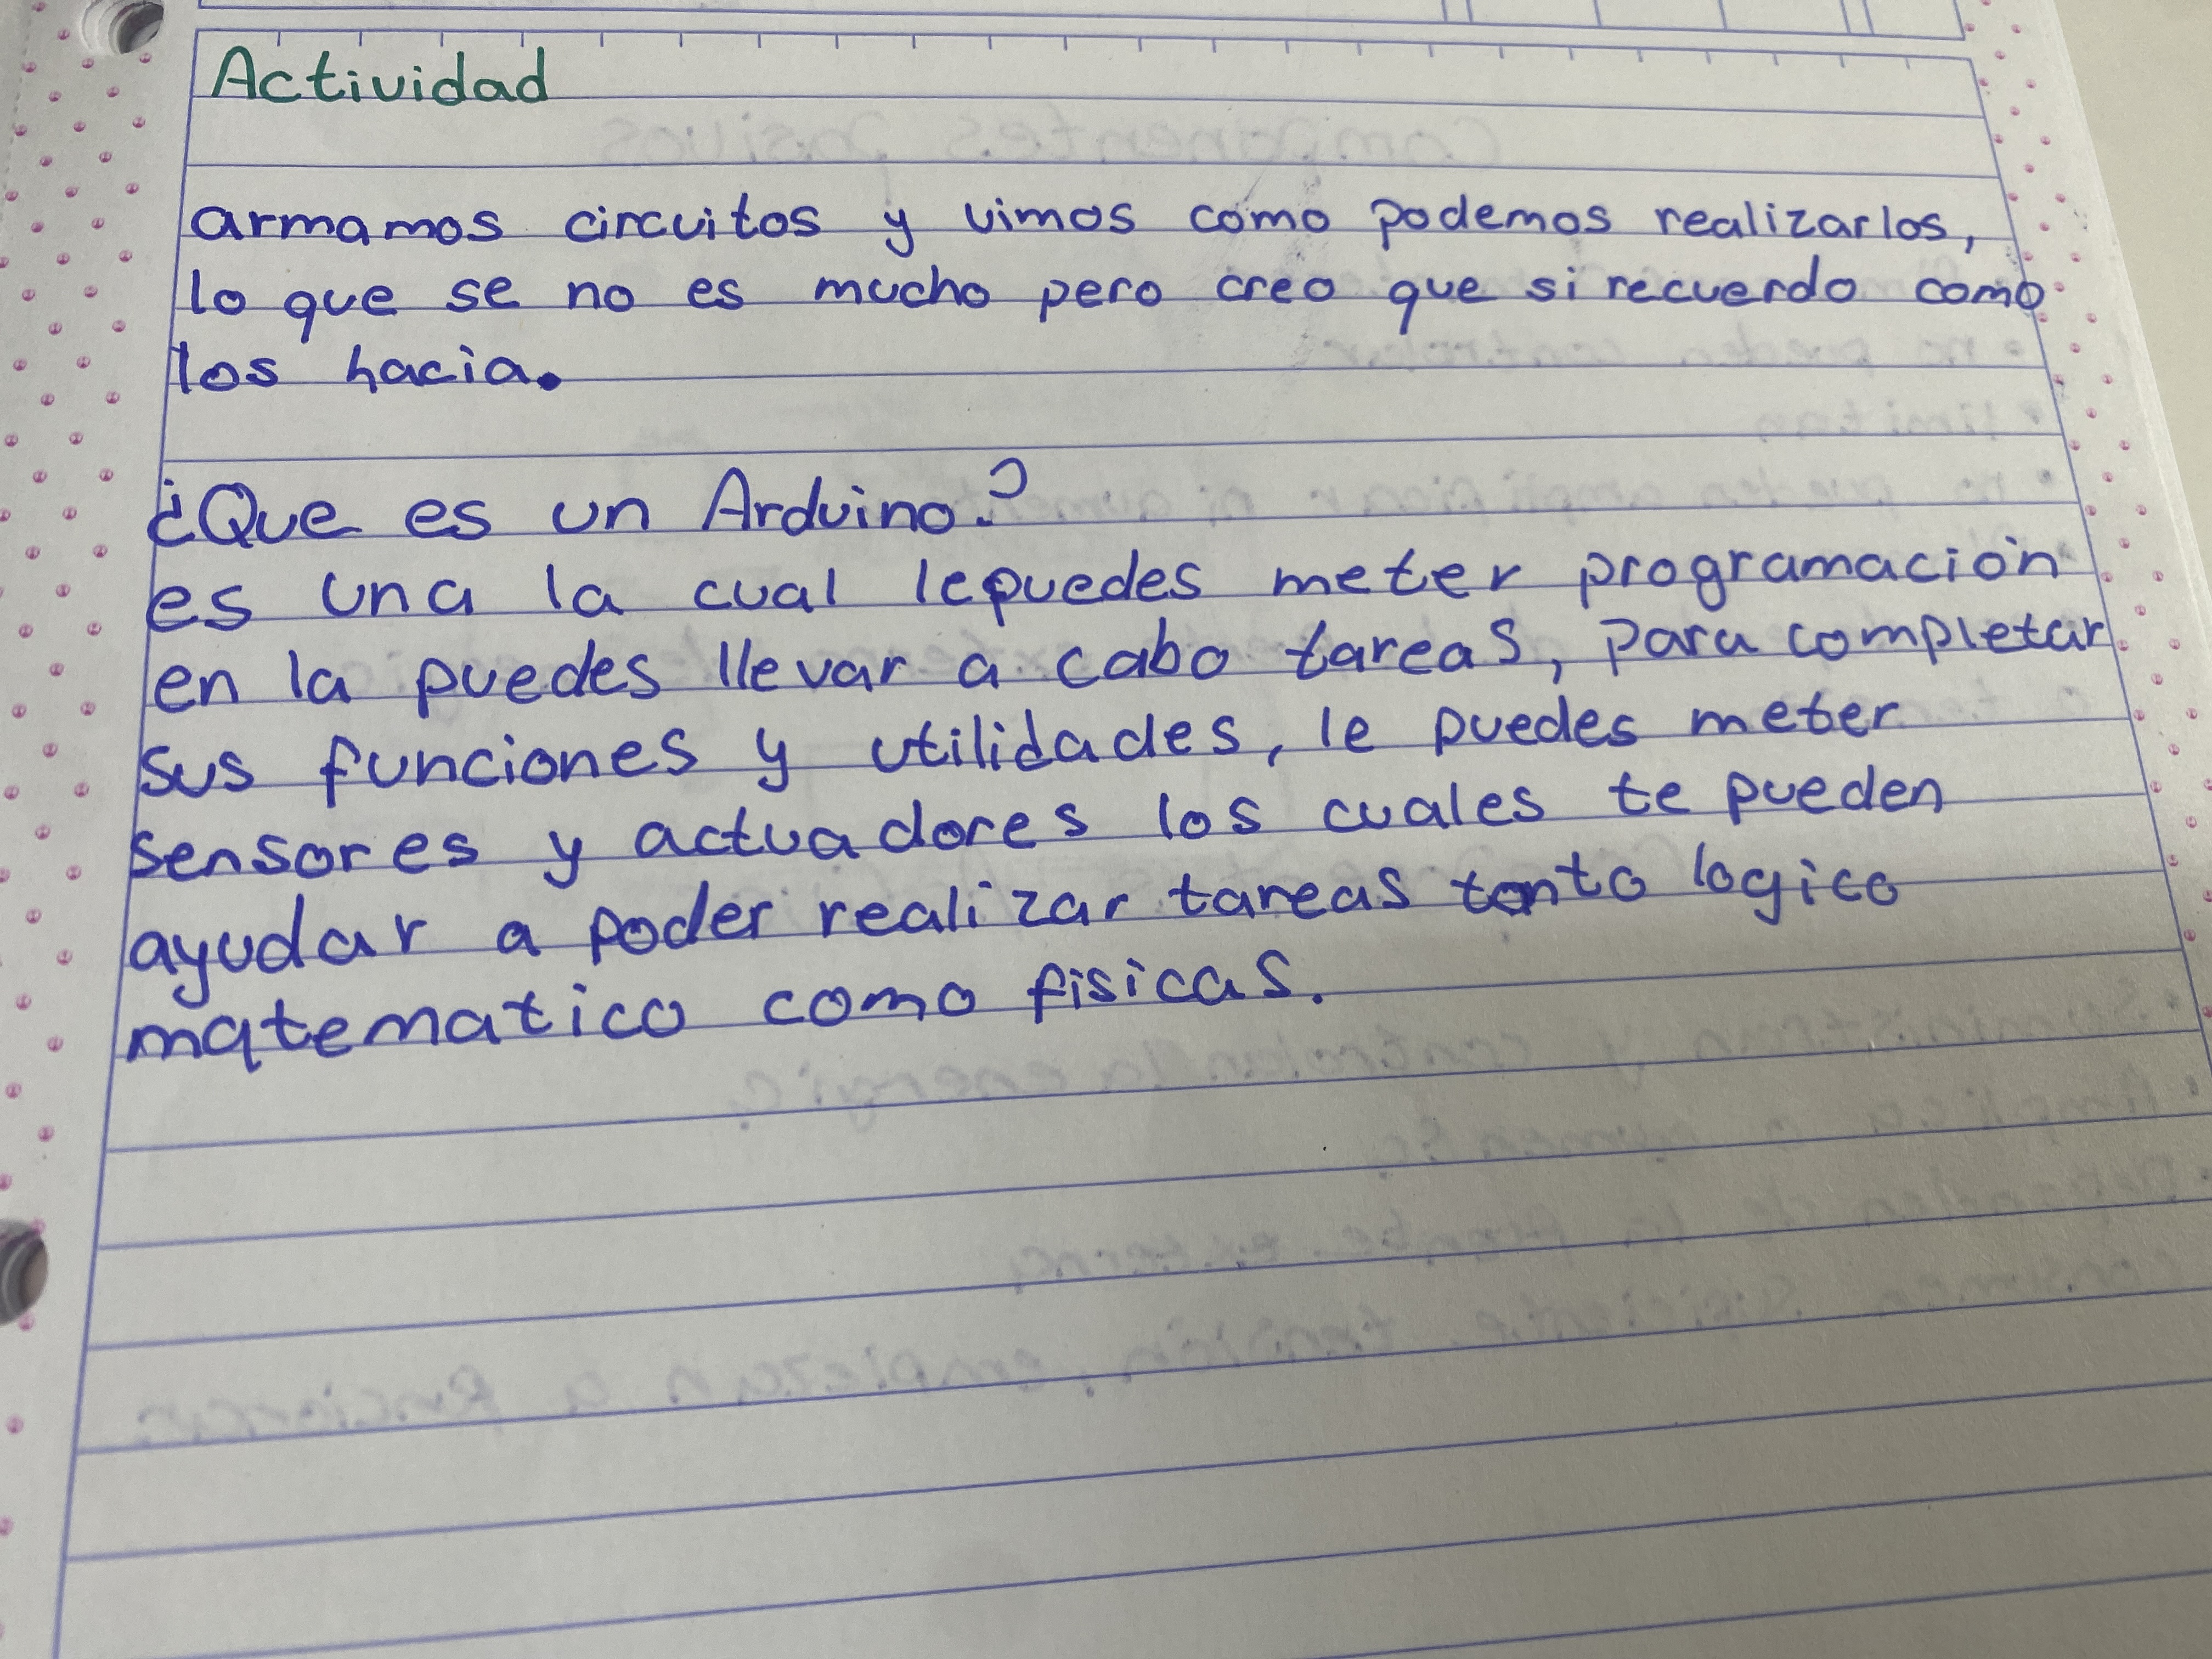 Actividad
armamos circuitos y vimos como podemos realizarlos,
lo que se no es mucho pero creo que si recuerdo como
los hacia.
¿Que es un Arduino?
es una la cual le puedes meter programación
en la puedes llevar a cabo tareas, para completar
sus funciones y utilidades, le puedes meter
sensores y actuadores los cuales te pueden
ayudar a poder realizar tareas tanto logico
matematico como fisicas.